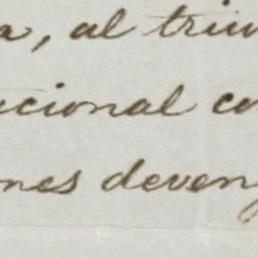 a, al triu
acional co
ones deveng